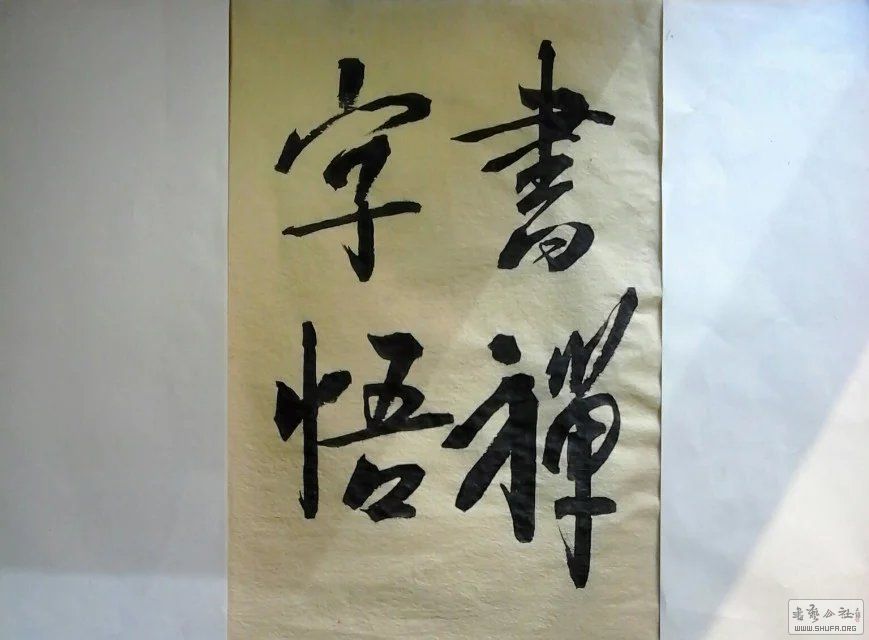 書禪
字悟
書藝公社
WWW.SHUFA.ORG